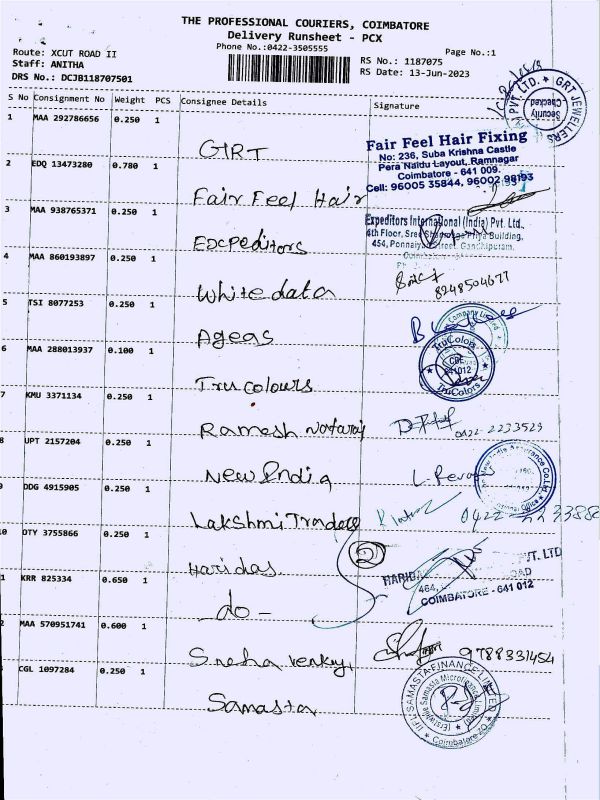 THE PROFESSIONAL COURIERS, COIMBATORE
Delivery Runsheet - PCX
Phone No.:0422-3505555
Page No.:1
Route: XCUT ROAD II
Staff: ANITHA
DRS No.: DCJB118707501
RS No.: 1187075
RS Date: 13-Jun-2023
S No Consignment No Weight PCS Consignee Details Signature
PVT LTD. ★ GRT JEWELLERS
Security Checked
1 MAA 292786656 0.250 1 GRT
Fair Feel Hair Fixing
No: 236, Suba Krishna Castle
Pera Naidu Layout, Ramnagar
Coimbatore - 641 009.
Cell: 96005 35844, 96002 98193
2 EDQ 13473280 0.780 1 Fair Feel Hair
3 MAA 938765371 0.250 1 Excpeditors
Expeditors International (India) Pvt. Ltd.,
4th Floor, Building,
454, Street, Gandhipuram,
4 MAA 860193897 0.250 1 White data
8248504677
5 TSI 8077253 0.250 1 Ageas
Company Limited
6 MAA 288013937 0.100 1 Tru colours
TruColors
CBE
641012
TruColors
7 KMU 3371134 0.250 1 Ramesh Nataraj
0422-2233523
8 UPT 2157204 0.250 1 New India
New India Assurance Co.Ltd
9 DDG 4915905 0.250 1 Lakshmi Traders
0422
10 OTY 3755866 0.250 1 Haridas
2
VT. LTD
464,
COIMBATORE - 641 012
1 KRR 825334 0.650 1 - do -
2 MAA 570951741 0.600 1 Sneha venky
9788331454
CGL 1097284 0.250 1 Samasta
IIFL SAMASTA FINANCE LIMITED
(Erstwhile Samasta Microfinance Limited)
Coimbatore